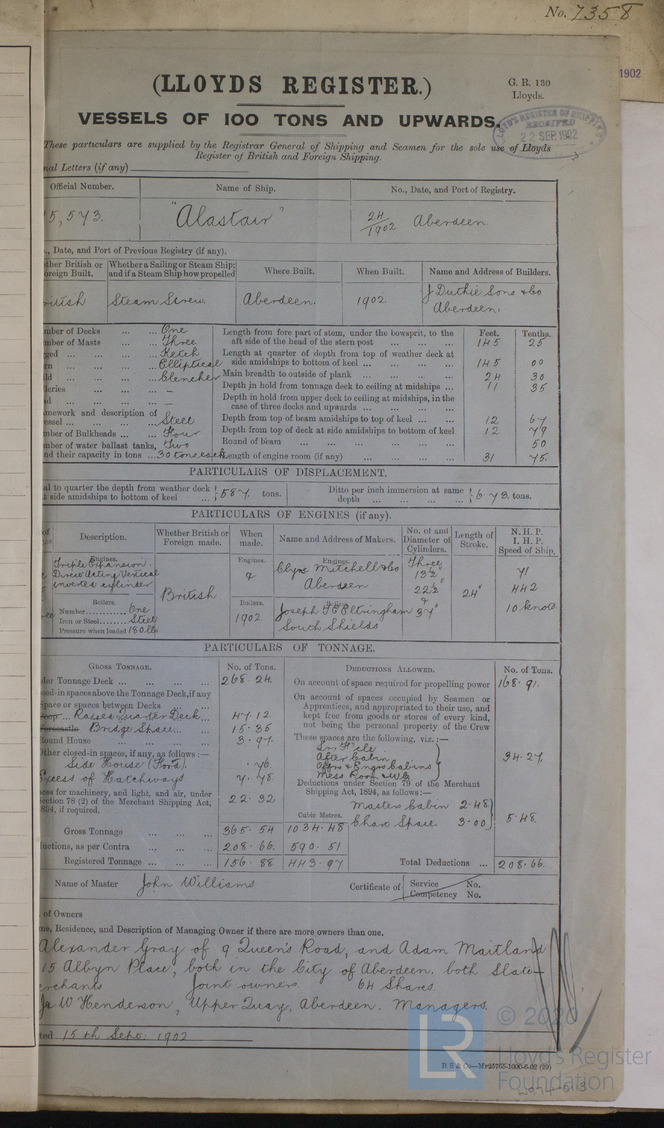 No. 7358
1902
(LLOYDS REGISTER.)
G. R. 130
Lloyds.
VESSELS OF 100 TONS AND UPWARDS.
LLOYD'S REGISTER OF SHIPPING
RECEIVED
22 SEP 1902
These particulars are supplied by the Registrar General of Shipping and Seamen for the sole use of Lloyds
Register of British and Foreign Shipping.
nal Letters (if any)
Official Number. Name of Ship. No., Date, and Port of Registry.
5,573. "Alastair" 24/1902 Aberdeen.
., Date, and Port of Previous Registry (if any).
ther British or Foreign Built. Whether a Sailing or Steam Ship; and if a Steam Ship how propelled Where Built. When Built. Name and Address of Builders.
ritish Steam Screw. Aberdeen. 1902 J Duthie Sons & Co Aberdeen.
mber of Decks ... ... One
mber of Masts ... ... Three
ged ... ... Ketch
rn ... ... Elliptical
ld ... ... Clencher
leries ... ... –
d ... ... –
amework and description of
essel ... ... Steel
mber of Bulkheads ... Four
mber of water ballast tanks, Two
nd their capacity in tons ... 30 tons each
Feet. Tenths.
Length from fore part of stem, under the bowsprit, to the
aft side of the head of the stern post ... 145 25
Length at quarter of depth from top of weather deck at
side amidships to bottom of keel ... 145 00
Main breadth to outside of plank ... 24 30
Depth in hold from tonnage deck to ceiling at midships ... 11 35
Depth in hold from upper deck to ceiling at midships, in the
case of three decks and upwards ...
Depth from top of beam amidships to top of keel ... 12 67
Depth from top of deck at side amidships to bottom of keel 12 79
Round of beam ... 50
Length of engine room (if any) ... 31 75.
PARTICULARS OF DISPLACEMENT.
al to quarter the depth from weather deck
t side amidships to bottom of keel ... 587. tons.
Ditto per inch immersion at same
depth ... 6.73. tons.
PARTICULARS OF ENGINES (if any).
of Description. Whether British or Foreign made. When made. Name and Address of Makers. No. of and Diameter of Cylinders. Length of Stroke. N. H. P. I. H. P. Speed of Ship.
Engines.
Triple Expansion
Direct Acting Vertical
inverted cylinder
Boilers.
Number One
Iron or Steel Steel
Pressure when loaded 180 lb
British
Engines.
Boilers.
1902
Engines.
Clyne Mitchell & Co
Aberdeen
Joseph T. Eltringham
South Shields
Three
13½"
22½"
&
37"
24"
71
442
10 knots
PARTICULARS OF TONNAGE.
GROSS TONNAGE. No. of Tons. DEDUCTIONS ALLOWED. No. of Tons.
der Tonnage Deck ... 268.24.
sed-in spaces above the Tonnage Deck, if any
Space or spaces between Decks
Poop ... Raised Quarter Deck ... 47.12
Forecastle Bridge Space ... 15.35
Round House ... 3.97.
Other closed-in spaces, if any, as follows :—
Side House (Ford). .76.
Excess of Hatchways 7.78
aces for machinery, and light, and air, under
Section 78 (2) of the Merchant Shipping Act,
1894, if required. 22.32
Cubic Metres.
Gross Tonnage ... 365.54 1034.48
uctions, as per Contra ... 208.66. 590.51
Registered Tonnage ... 156.88 443.97
On account of space required for propelling power 168.91.
On account of spaces occupied by Seamen or
Apprentices, and appropriated to their use, and
kept free from goods or stores of every kind,
not being the personal property of the Crew
These spaces are the following, viz. :—
After Cabin
Offrs & Engrs Cabins
Mess Room & W.C.
34.27
Deductions under Section 79 of the Merchant
Shipping Act, 1894, as follows :—
Masters Cabin 2.48
Chart Space 3.00
5.48
Total Deductions ... 208.66.
Name of Master John Williams
Certificate of Service No.
Competency No.
. of Owners
me, Residence, and Description of Managing Owner if there are more owners than one.
Alexander Gray of 9 Queen's Road, and Adam Maitland
15 Albyn Place, both in the City of Aberdeen. both Slate—
erchants Joint owners 64 Shares.
Jas W Henderson, Upper Quay, Aberdeen. Managers.
ted 15th Sept: 1902
D S & Co—Mr25765-1000-6-02 (29)
© 2020
LR
Lloyd's Register
Foundation